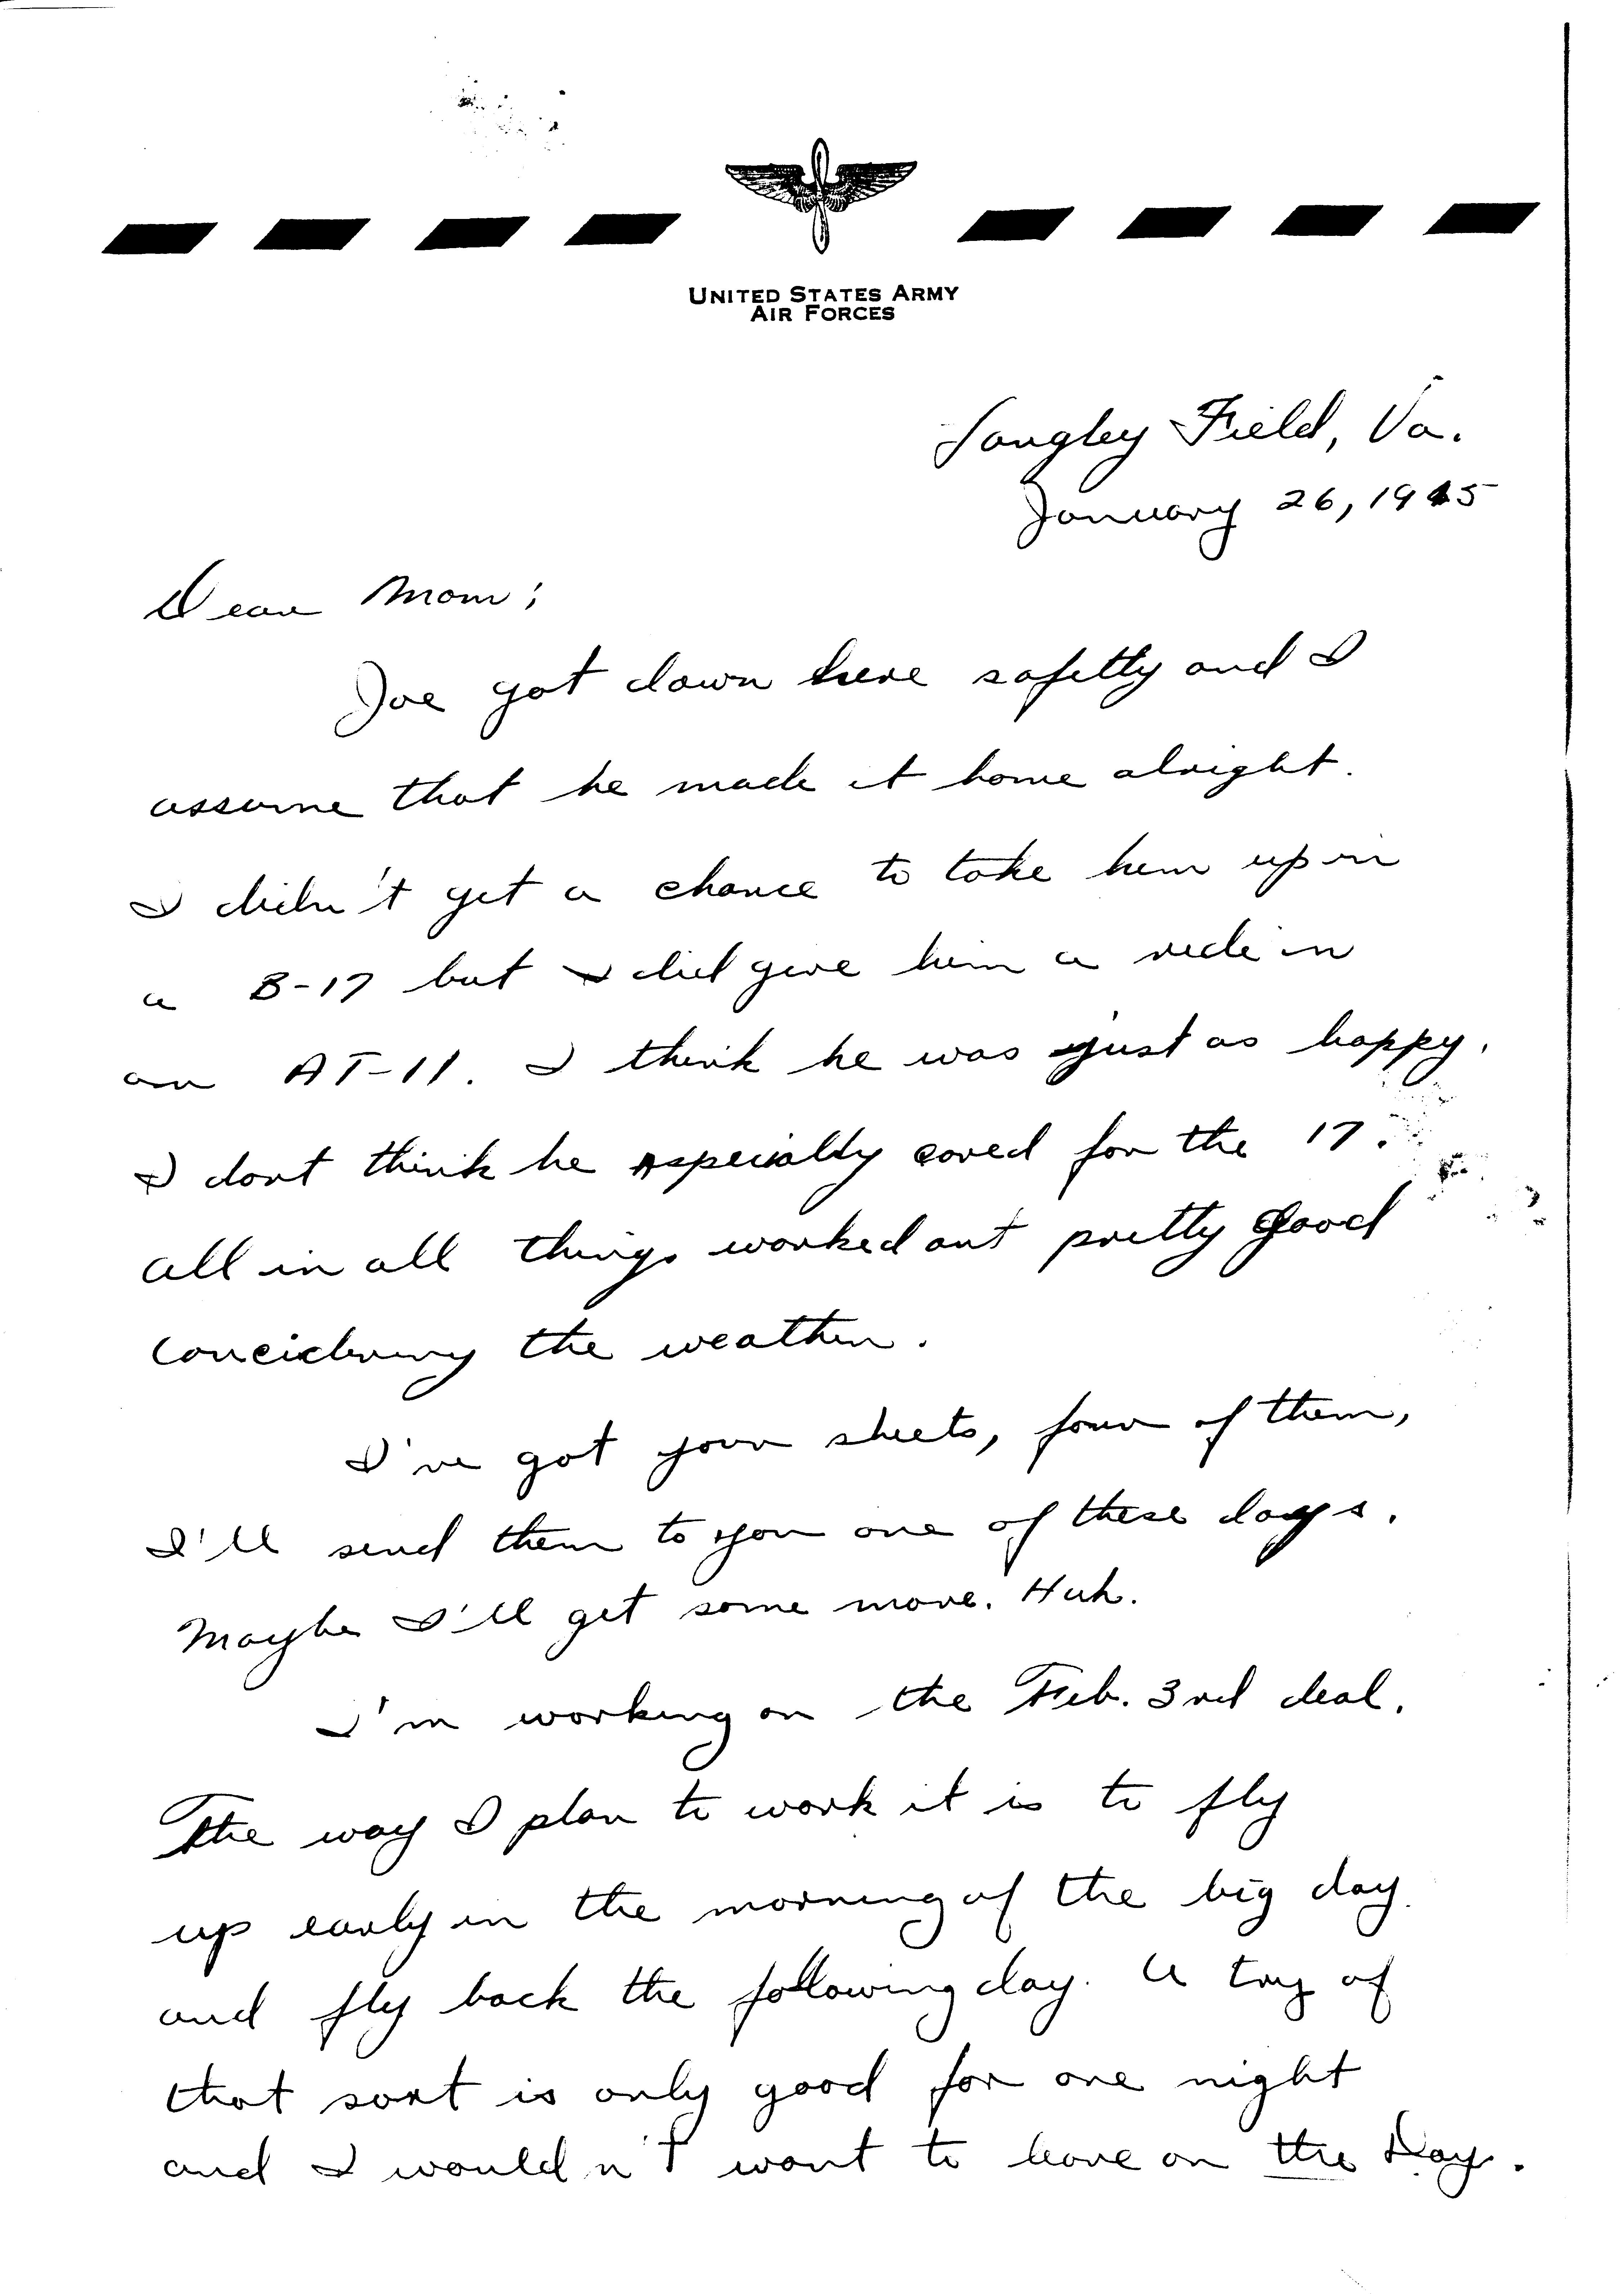 UNITED STATES ARMY
AIR FORCES
Langley Field, Va.
January 26, 1945
Dear Mom;
Joe got down here safetly and I
assume that he made it home alright.
I didn't get a chance to take him up in
a B-17 but I did give him a ride in
an AT-11. I think he was just as happy.
I dont think he aspecially cared for the 17.
all in all things worked out pretty good
concidering the weather.
I've got your sheets, four of them,
I'll send them to you one of these days.
Maybe I'll get some more. Huh.
I'm working on the Feb. 3rd deal.
The way I plan to work it is to fly
up early in the morning of the big day
and fly back the following day. A trip of
that sort is only good for one night
and I wouldn't want to leave on the Day.